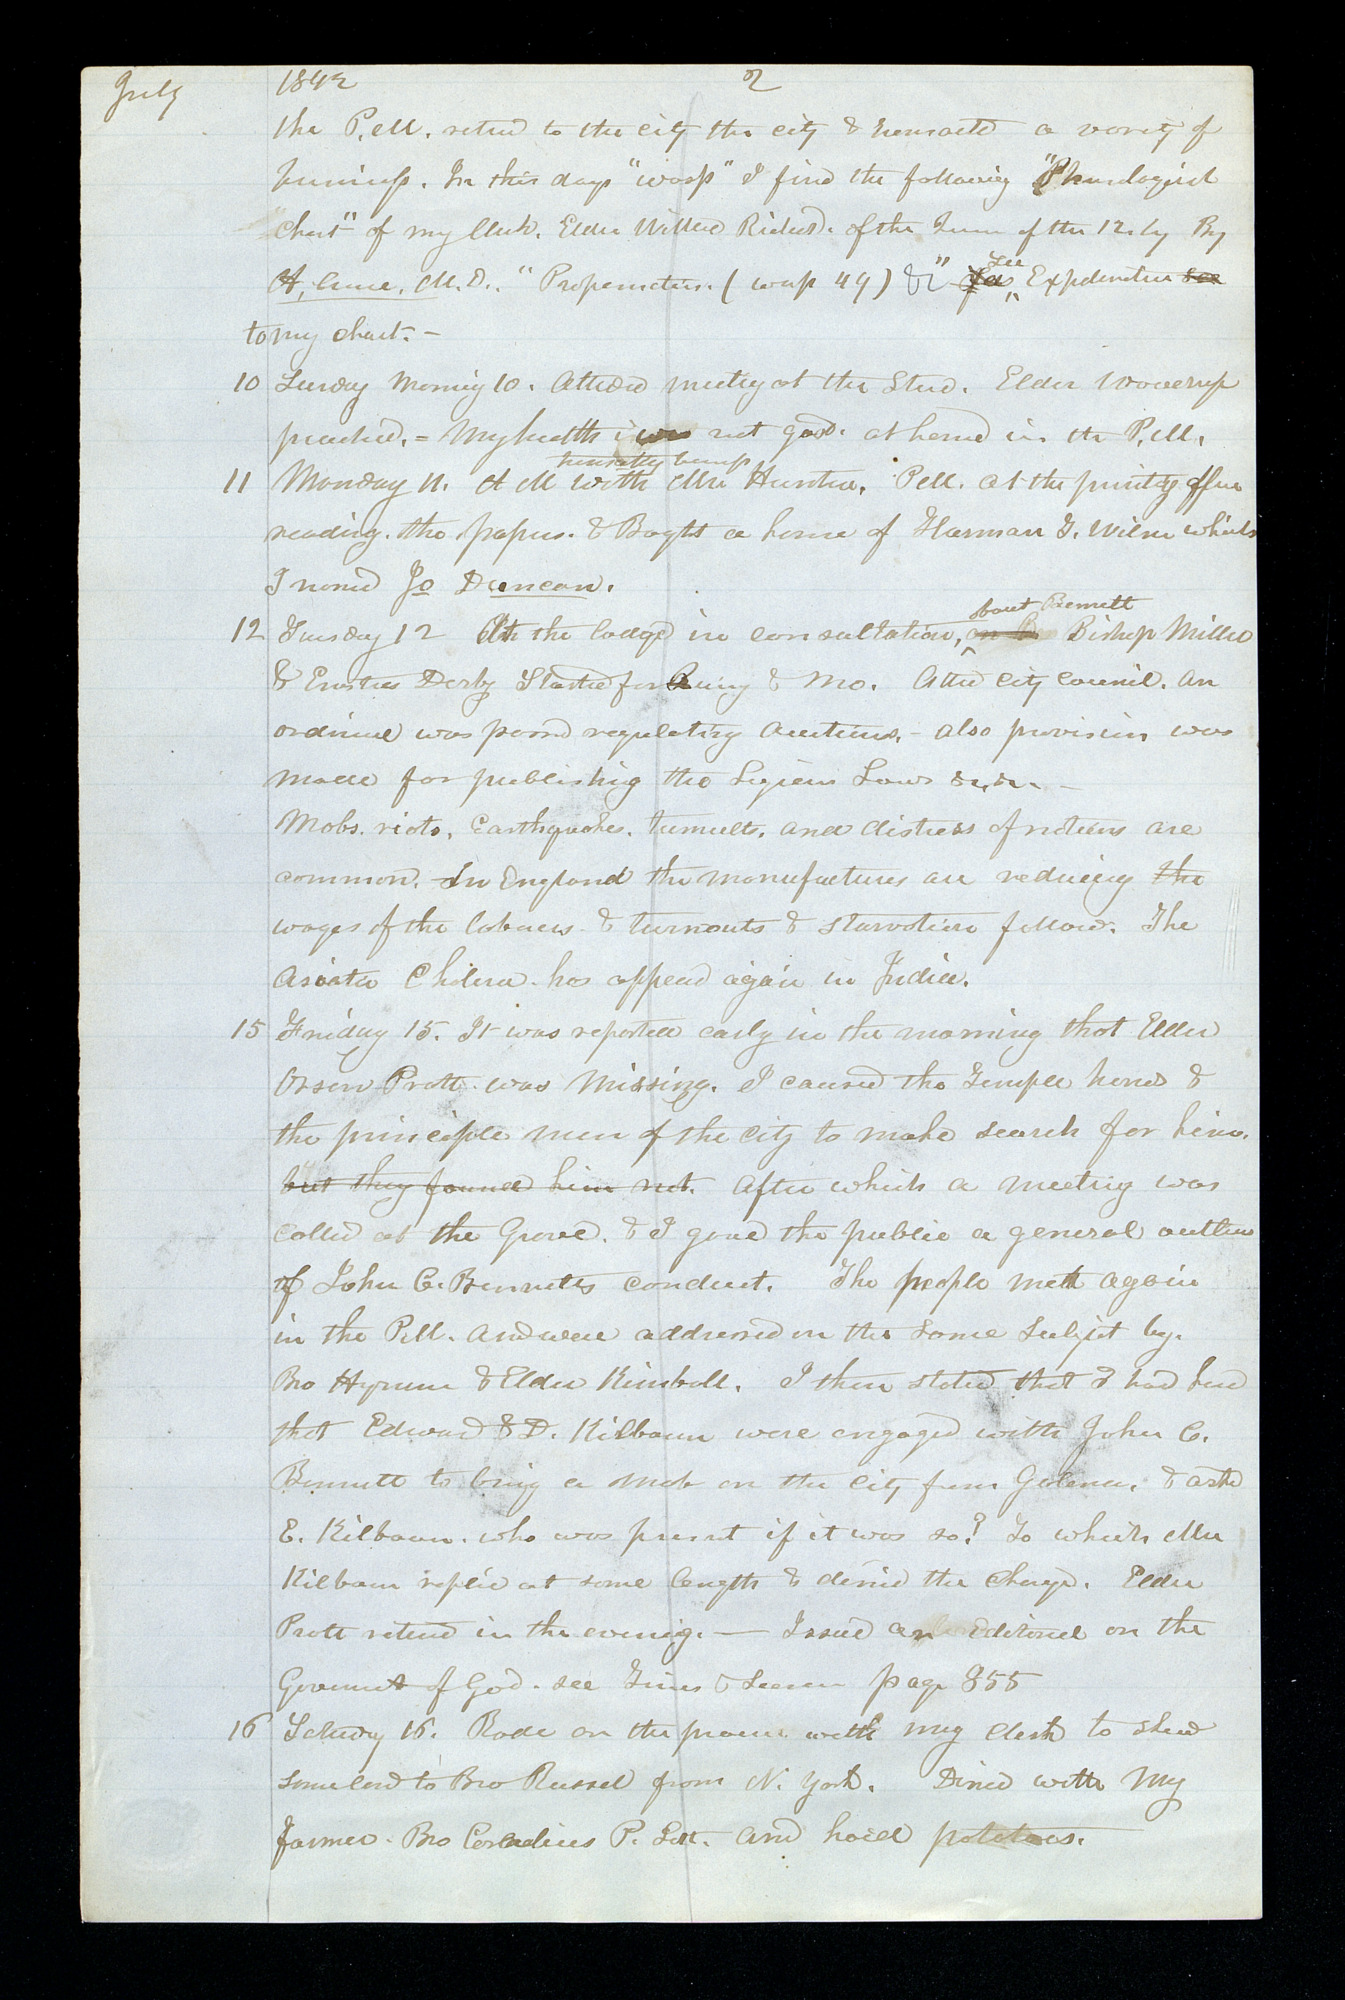 July 1842 2
the P.M. retnd to the city the city & transacted a variety of
business. In this days "wasp" I find the following "Phrenlogical
Chart" of my Clerk. Elder Willard Richards. of the Quum of the 12. by By
A. Crane. M.D.. "Propensities. (wasp 49) &c" See Expdnation see
to my chart. —
10 Sunday Morning 10. Attedd meetig at the Stnd. Elder Woodruff
preached. = My health is was not good. at home in the P.M.
transactig busnss
11 Monday 11. A M with Mr Hunter. P.M. at the printig office
reading. the papers. & Bought a horse of Harman T. Wilsn which
I named Jo Duncan.
about Bennett
12 Tuesday 12 At the lodge in consultation, on B Bishop Miller
& Erastus Derby Started for Quincy & Mo. Attd City Council. An
ordinnce was passd regulating auctions. - also provision was
made for publishig the Legion Laws &c. &c. —
Mobs. riots. Earthquakes. tumults. and distress of nations are
common. In England the manufacturers are reducing the
wages of the laborers & turnouts & starvation follow. The
Asiatic Cholera has appeard again in India.
15 Friday 15. It was reported early in the morning that Elder
Orson Pratt was Missing. I caused the Temple hands &
the principle men of the city to make search for him.
but they found him not. After which a meeting was
called at the Grove. & I gave the public a general outline
of John C. Bennetts conduct. The people mett again
in the P.M. and were addressed on the same subject by.
Bro Hyrum & Elder Kimball. I then stated that I had head
that Edward & D. Kilbourn were engaged with John C.
Bennett to bring a mob on the city from Galena, & askd
E. Kilbourn. who was present if it was so? To which Mr
Kilbourn replid at some length & denied the charge. Elder
Pratt retund in the evenig. — Issued an Editorial on the
Government of God. see Times & Season page 855
16 Saturday 16. Rode on the prairie with my clerk to shew
some land to Bro Russel from N. York. Dined with My
farmer. Bro Cornelius P. Lott. and hoed potatoes.